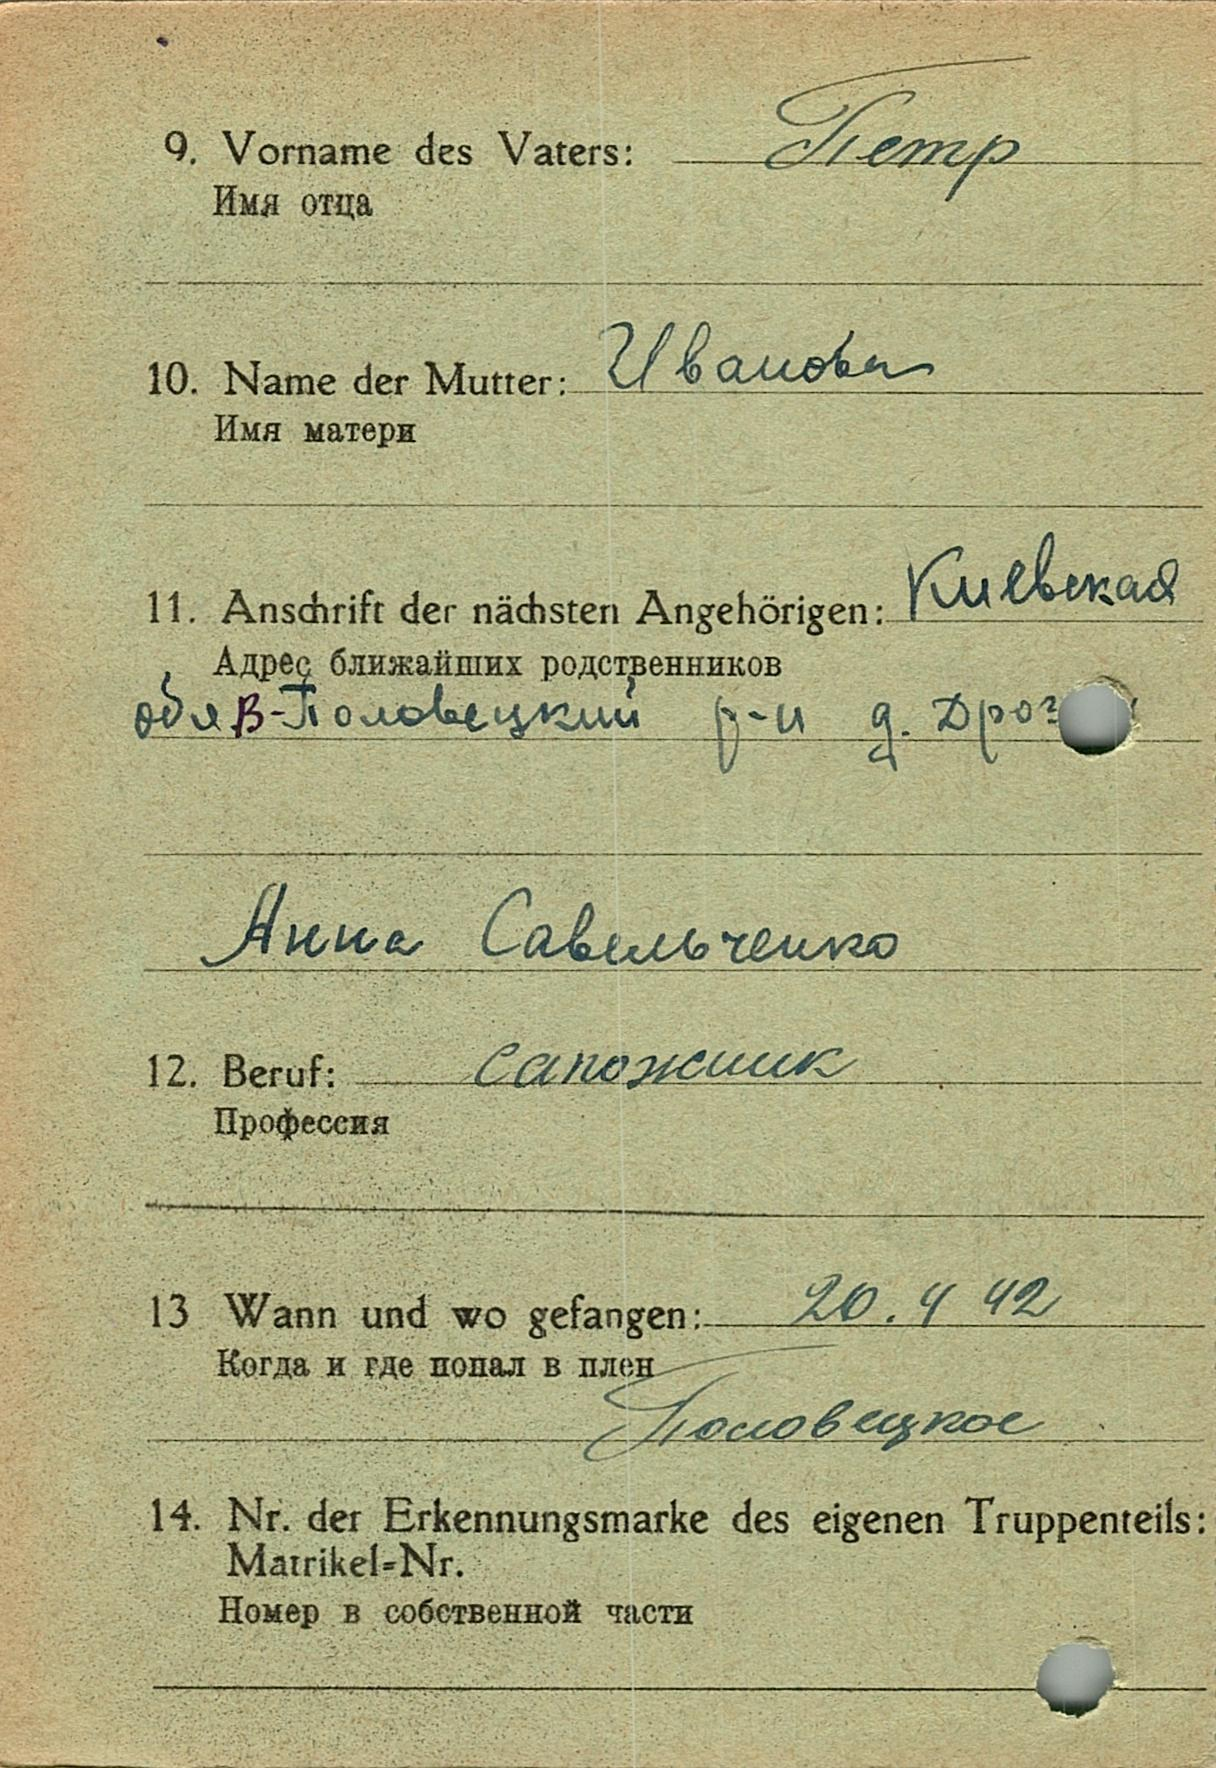 9. Vorname des Vaters: Петр
Имя отца
10. Name der Mutter: Иванова
Имя матери
11. Anschrift der nächsten Angehörigen: Киевская
Адрес ближайших родственников
обл В-Половецкий р-н д.
Анна Савельченко
12. Beruf: сапожник
Профессия
13 Wann und wo gefangen: 20.4 42
Когда и где попал в плен
Половецкое
14. Nr. der Erkennungsmarke des eigenen Truppenteils:
Matrikel-Nr.
Номер в собственной части